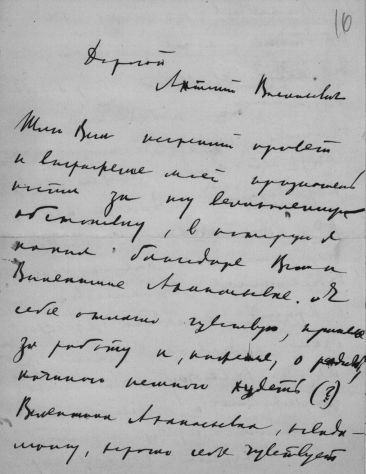 16
Дорогой
Антоний Васильевич
Шлю Вам искренний привет
и выражение моей признатель-
ности за ту великолепную
обстановку, в которую я
попал благодаря Вам и
Валентине Афанасьевне. Я
себя отлично чувствую, принялся
за работу и, конечно, о
начинаю немного худеть (?)
Валентина Афанасьевна, по-види-
мому, хорошо себя чувствует